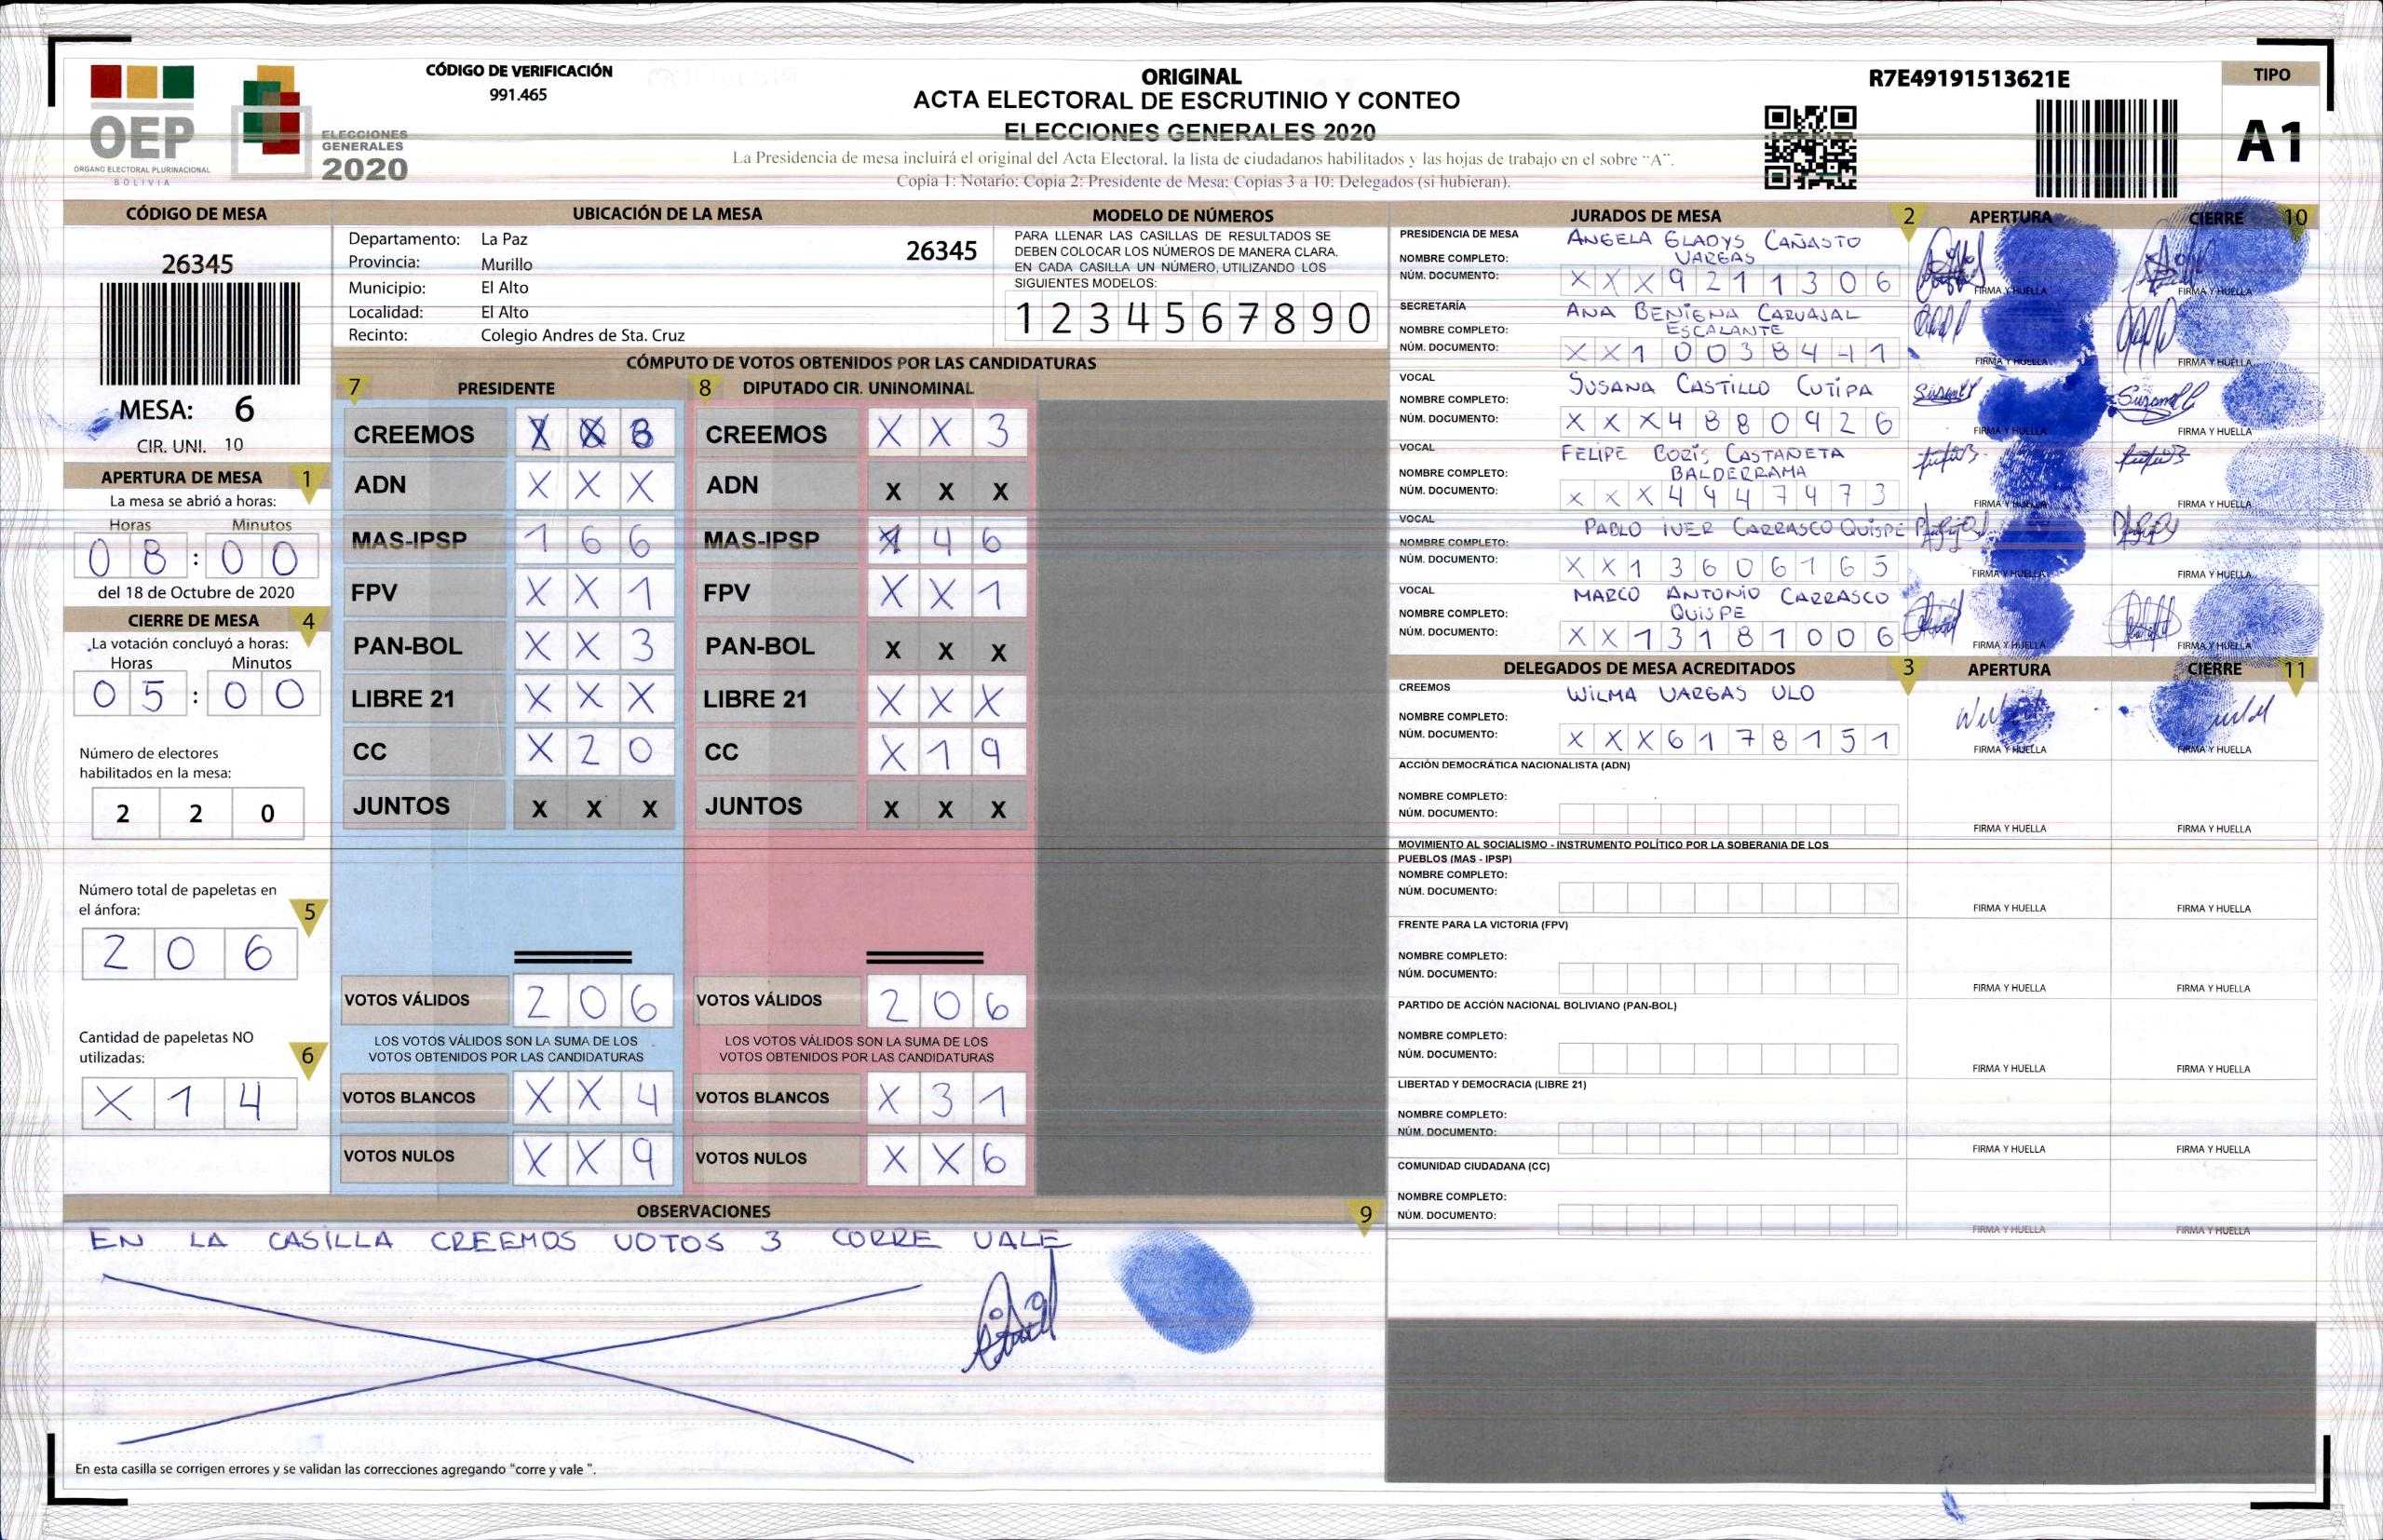 CÓDIGO DE VERIFICACIÓN
991.465
OEP
ÓRGANO ELECTORAL PLURINACIONAL
BOLIVIA
ELECCIONES
GENERALES
2020
ORIGINAL
ACTA ELECTORAL DE ESCRUTINIO Y CONTEO
ELECCIONES GENERALES 2020
La Presidencia de mesa incluirá el original del Acta Electoral, la lista de ciudadanos habilitados y las hojas de trabajo en el sobre “A”.
Copia 1: Notario; Copia 2: Presidente de Mesa; Copias 3 a 10: Delegados (si hubieran).
R7E49191513621E
TIPO
A1
CÓDIGO DE MESA
26345
MESA: 6
CIR. UNI. 10
UBICACIÓN DE LA MESA
Departamento: La Paz 26345
Provincia: Murillo
Municipio: El Alto
Localidad: El Alto
Recinto: Colegio Andres de Sta. Cruz
MODELO DE NÚMEROS
PARA LLENAR LAS CASILLAS DE RESULTADOS SE
DEBEN COLOCAR LOS NÚMEROS DE MANERA CLARA.
EN CADA CASILLA UN NÚMERO, UTILIZANDO LOS
SIGUIENTES MODELOS:
1 2 3 4 5 6 7 8 9 0
APERTURA DE MESA 1
La mesa se abrió a horas:
Horas Minutos
0 8 : 0 0
del 18 de Octubre de 2020
CIERRE DE MESA 4
La votación concluyó a horas:
Horas Minutos
0 5 : 0 0
Número de electores
habilitados en la mesa:
2 2 0
Número total de papeletas en
el ánfora: 5
2 0 6
Cantidad de papeletas NO
utilizadas: 6
X 1 4
CÓMPUTO DE VOTOS OBTENIDOS POR LAS CANDIDATURAS
7 PRESIDENTE 8 DIPUTADO CIR. UNINOMINAL
CREEMOS CREEMOS X X 3
ADN X X X ADN X X X
MAS-IPSP 1 6 6 MAS-IPSP 1 4 6
FPV X X 1 FPV X X 1
PAN-BOL X X 3 PAN-BOL X X X
LIBRE 21 X X X LIBRE 21 X X X
CC X 2 0 CC X 1 9
JUNTOS X X X JUNTOS X X X
VOTOS VÁLIDOS 2 0 6 VOTOS VÁLIDOS 2 0 6
LOS VOTOS VÁLIDOS SON LA SUMA DE LOS LOS VOTOS VÁLIDOS SON LA SUMA DE LOS
VOTOS OBTENIDOS POR LAS CANDIDATURAS VOTOS OBTENIDOS POR LAS CANDIDATURAS
VOTOS BLANCOS X X 4 VOTOS BLANCOS X 3 1
VOTOS NULOS X X 9 VOTOS NULOS X X 6
OBSERVACIONES 9
EN LA CASILLA CREEMOS VOTOS 3 CORRE VALE
En esta casilla se corrigen errores y se validan las correcciones agregando "corre y vale ".
JURADOS DE MESA 2 APERTURA CIERRE 10
PRESIDENCIA DE MESA ANGELA GLADYS CAÑASTO
NOMBRE COMPLETO: VARGAS
NÚM. DOCUMENTO: X X X 9 2 1 1 3 0 6 FIRMA Y HUELLA FIRMA Y HUELLA
SECRETARÍA ANA BENIGNA CARVAJAL
NOMBRE COMPLETO: ESCALANTE
NÚM. DOCUMENTO: X X 1 0 0 3 8 4 4 1 FIRMA Y HUELLA FIRMA Y HUELLA
VOCAL SUSANA CASTILLO CUTIPA
NOMBRE COMPLETO:
NÚM. DOCUMENTO: X X X 4 8 8 0 9 2 6 FIRMA Y HUELLA FIRMA Y HUELLA
VOCAL FELIPE BORIS CASTAÑETA
NOMBRE COMPLETO: BALDERRAMA
NÚM. DOCUMENTO: X X X 4 9 4 7 9 7 3 FIRMA Y HUELLA FIRMA Y HUELLA
VOCAL PABLO IVER CARRASCO QUISPE
NOMBRE COMPLETO:
NÚM. DOCUMENTO: X X 1 3 6 0 6 1 6 5 FIRMA Y HUELLA FIRMA Y HUELLA
VOCAL MARCO ANTONIO CARRASCO
NOMBRE COMPLETO: QUISPE
NÚM. DOCUMENTO: X X 1 3 1 8 1 0 0 6 FIRMA Y HUELLA FIRMA Y HUELLA
DELEGADOS DE MESA ACREDITADOS 3 APERTURA CIERRE 11
CREEMOS WILMA VARGAS ULO
NOMBRE COMPLETO:
NÚM. DOCUMENTO: X X X 6 1 7 8 1 5 1 FIRMA Y HUELLA FIRMA Y HUELLA
ACCIÓN DEMOCRÁTICA NACIONALISTA (ADN)
NOMBRE COMPLETO:
NÚM. DOCUMENTO: FIRMA Y HUELLA FIRMA Y HUELLA
MOVIMIENTO AL SOCIALISMO - INSTRUMENTO POLÍTICO POR LA SOBERANIA DE LOS
PUEBLOS (MAS - IPSP)
NOMBRE COMPLETO:
NÚM. DOCUMENTO: FIRMA Y HUELLA FIRMA Y HUELLA
FRENTE PARA LA VICTORIA (FPV)
NOMBRE COMPLETO:
NÚM. DOCUMENTO: FIRMA Y HUELLA FIRMA Y HUELLA
PARTIDO DE ACCIÓN NACIONAL BOLIVIANO (PAN-BOL)
NOMBRE COMPLETO:
NÚM. DOCUMENTO: FIRMA Y HUELLA FIRMA Y HUELLA
LIBERTAD Y DEMOCRACIA (LIBRE 21)
NOMBRE COMPLETO:
NÚM. DOCUMENTO: FIRMA Y HUELLA FIRMA Y HUELLA
COMUNIDAD CIUDADANA (CC)
NOMBRE COMPLETO:
NÚM. DOCUMENTO: FIRMA Y HUELLA FIRMA Y HUELLA